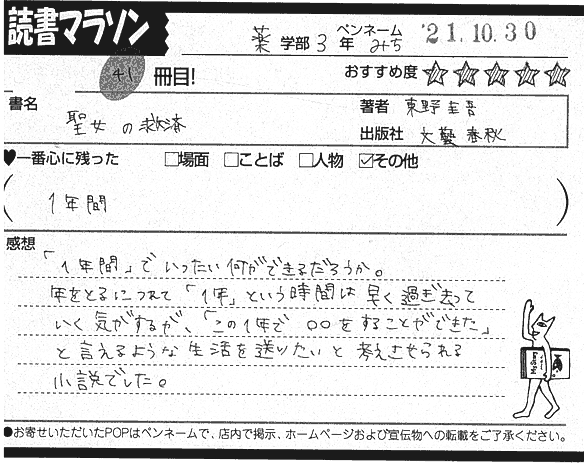 読書マラソン
薬 学部 3 年 ペンネーム みち '21.10.30
41 冊目! おすすめ度 ☆☆☆☆☆
書名 聖女の救済
著者 東野圭吾
出版社 文藝春秋
♥一番心に残った □場面 □ことば □人物 ☑その他
(1年間)
感想
「1年間」でいったい何ができるだろうか。
年をとるにつれて「1年」という時間は早く過ぎ去って
いく気がするが、「この1年で○○をすることができた」
と言えるような生活を送りたいと考えさせられる
小説でした。
My Story
●お寄せいただいたPOPはペンネームで、店内で掲示、ホームページおよび宣伝物への転載をご了承ください。